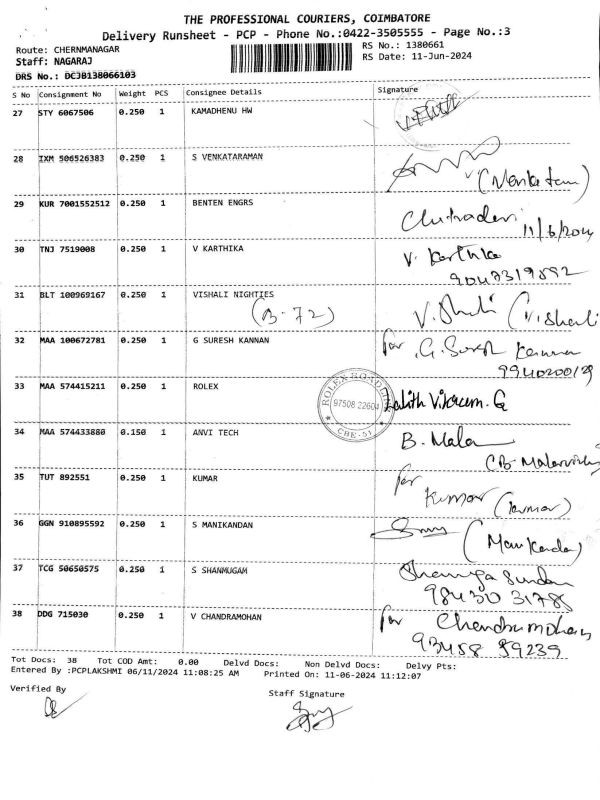 THE PROFESSIONAL COURIERS, COIMBATORE
Delivery Runsheet - PCP - Phone No.:0422-3505555 - Page No.:3
Route: CHERNMANAGAR RS No.: 1380661
Staff: NAGARAJ RS Date: 11-Jun-2024
DRS No.: DCJB138066103
S No Consignment No Weight PCS Consignee Details Signature
27 STY 6067506 0.250 1 KAMADHENU HW
28 IXM 506526383 0.250 1 S VENKATARAMAN
(Venkatam)
29 KUR 7001552512 0.250 1 BENTEN ENGRS
Chitradevi
11/6/2024
30 TNJ 7519008 0.250 1 V KARTHIKA V. Karthika
9047319592
31 BLT 100969167 0.250 1 VISHALI NIGHTIES
(B-72) V. Shali (Vishali
32 MAA 100672781 0.250 1 G SURESH KANNAN for G. Suresh Kannan
9940200129
33 MAA 574415211 0.250 1 ROLEX
ROLEX ROADLINE 97508 22604 CBE-51 Lalith Vikram. G
34 MAA 574433880 0.150 1 ANVI TECH B. Mala
(B- Malarvizhi
35 TUT 892551 0.250 1 KUMAR for
Kumar (kumar)
36 GGN 910895592 0.250 1 S MANIKANDAN
(Manikanda)
37 TCG 50650575 0.250 1 S SHANMUGAM Shanmuga Sundar
98430 31788
38 DDG 715030 0.250 1 V CHANDRAMOHAN for Chandramohan
93458 89239
Tot Docs: 38 Tot COD Amt: 0.00 Delvd Docs: Non Delvd Docs: Delvy Pts:
Entered By :PCPLAKSHMI 06/11/2024 11:08:25 AM Printed On: 11-06-2024 11:12:07
Verified By Staff Signature